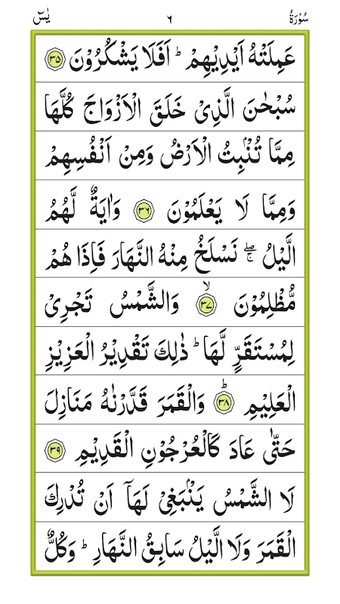 سُوْرَةُ ٦ يٰسٓ
عَمِلَتْهُ اَيْدِيْهِمْ ؕ اَفَلَا يَشْكُرُوْنَ ﴿۳۵﴾
سُبْحٰنَ الَّذِيْ خَلَقَ الْاَزْوَاجَ كُلَّهَا
مِمَّا تُنْۢبِتُ الْاَرْضُ وَمِنْ اَنْفُسِهِمْ
وَمِمَّا لَا يَعْلَمُوْنَ ﴿۳۶﴾ وَاٰيَةٌ لَّهُمُ
الَّيْلُ ۖۚ نَسْلَخُ مِنْهُ النَّهَارَ فَاِذَا هُمْ
مُّظْلِمُوْنَ ﴿۳۷﴾ۙ وَالشَّمْسُ تَجْرِيْ
لِمُسْتَقَرٍّ لَّهَا ؕ ذٰلِكَ تَقْدِيْرُ الْعَزِيْزِ
الْعَلِيْمِ ﴿۳۸﴾ؕ وَالْقَمَرَ قَدَّرْنٰهُ مَنَازِلَ
حَتّٰى عَادَ كَالْعُرْجُوْنِ الْقَدِيْمِ ﴿۳۹﴾
لَا الشَّمْسُ يَنْۢبَغِيْ لَهَاۤ اَنْ تُدْرِكَ
الْقَمَرَ وَلَا الَّيْلُ سَابِقُ النَّهَارِ ؕ وَكُلٌّ